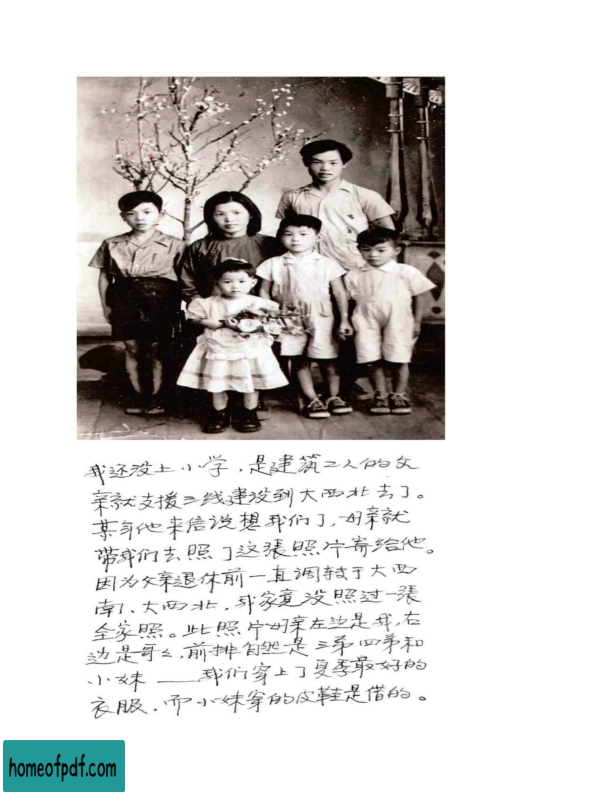 我还没上小学，是建筑工人的父
亲就支援三线建设到大西北去了。
某年他来信说想我们了，母亲就
带我们去照了这張照片寄给他。
因为父亲退休前一直调转于大西
南、大西北，我家竟没照过一張
全家照。此照片母亲左边是我，右
边是哥哥，前排自然是三弟四弟和
小妹——我们穿上了夏季最好的
衣服，而小妹穿的皮鞋是借的。
homeofpdf.com